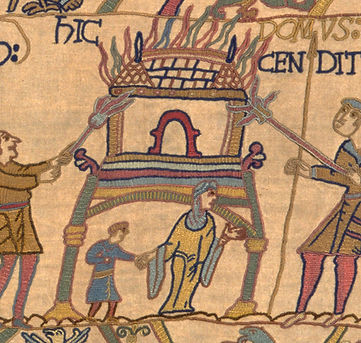 HIC DOMVS:
O: CENDIT